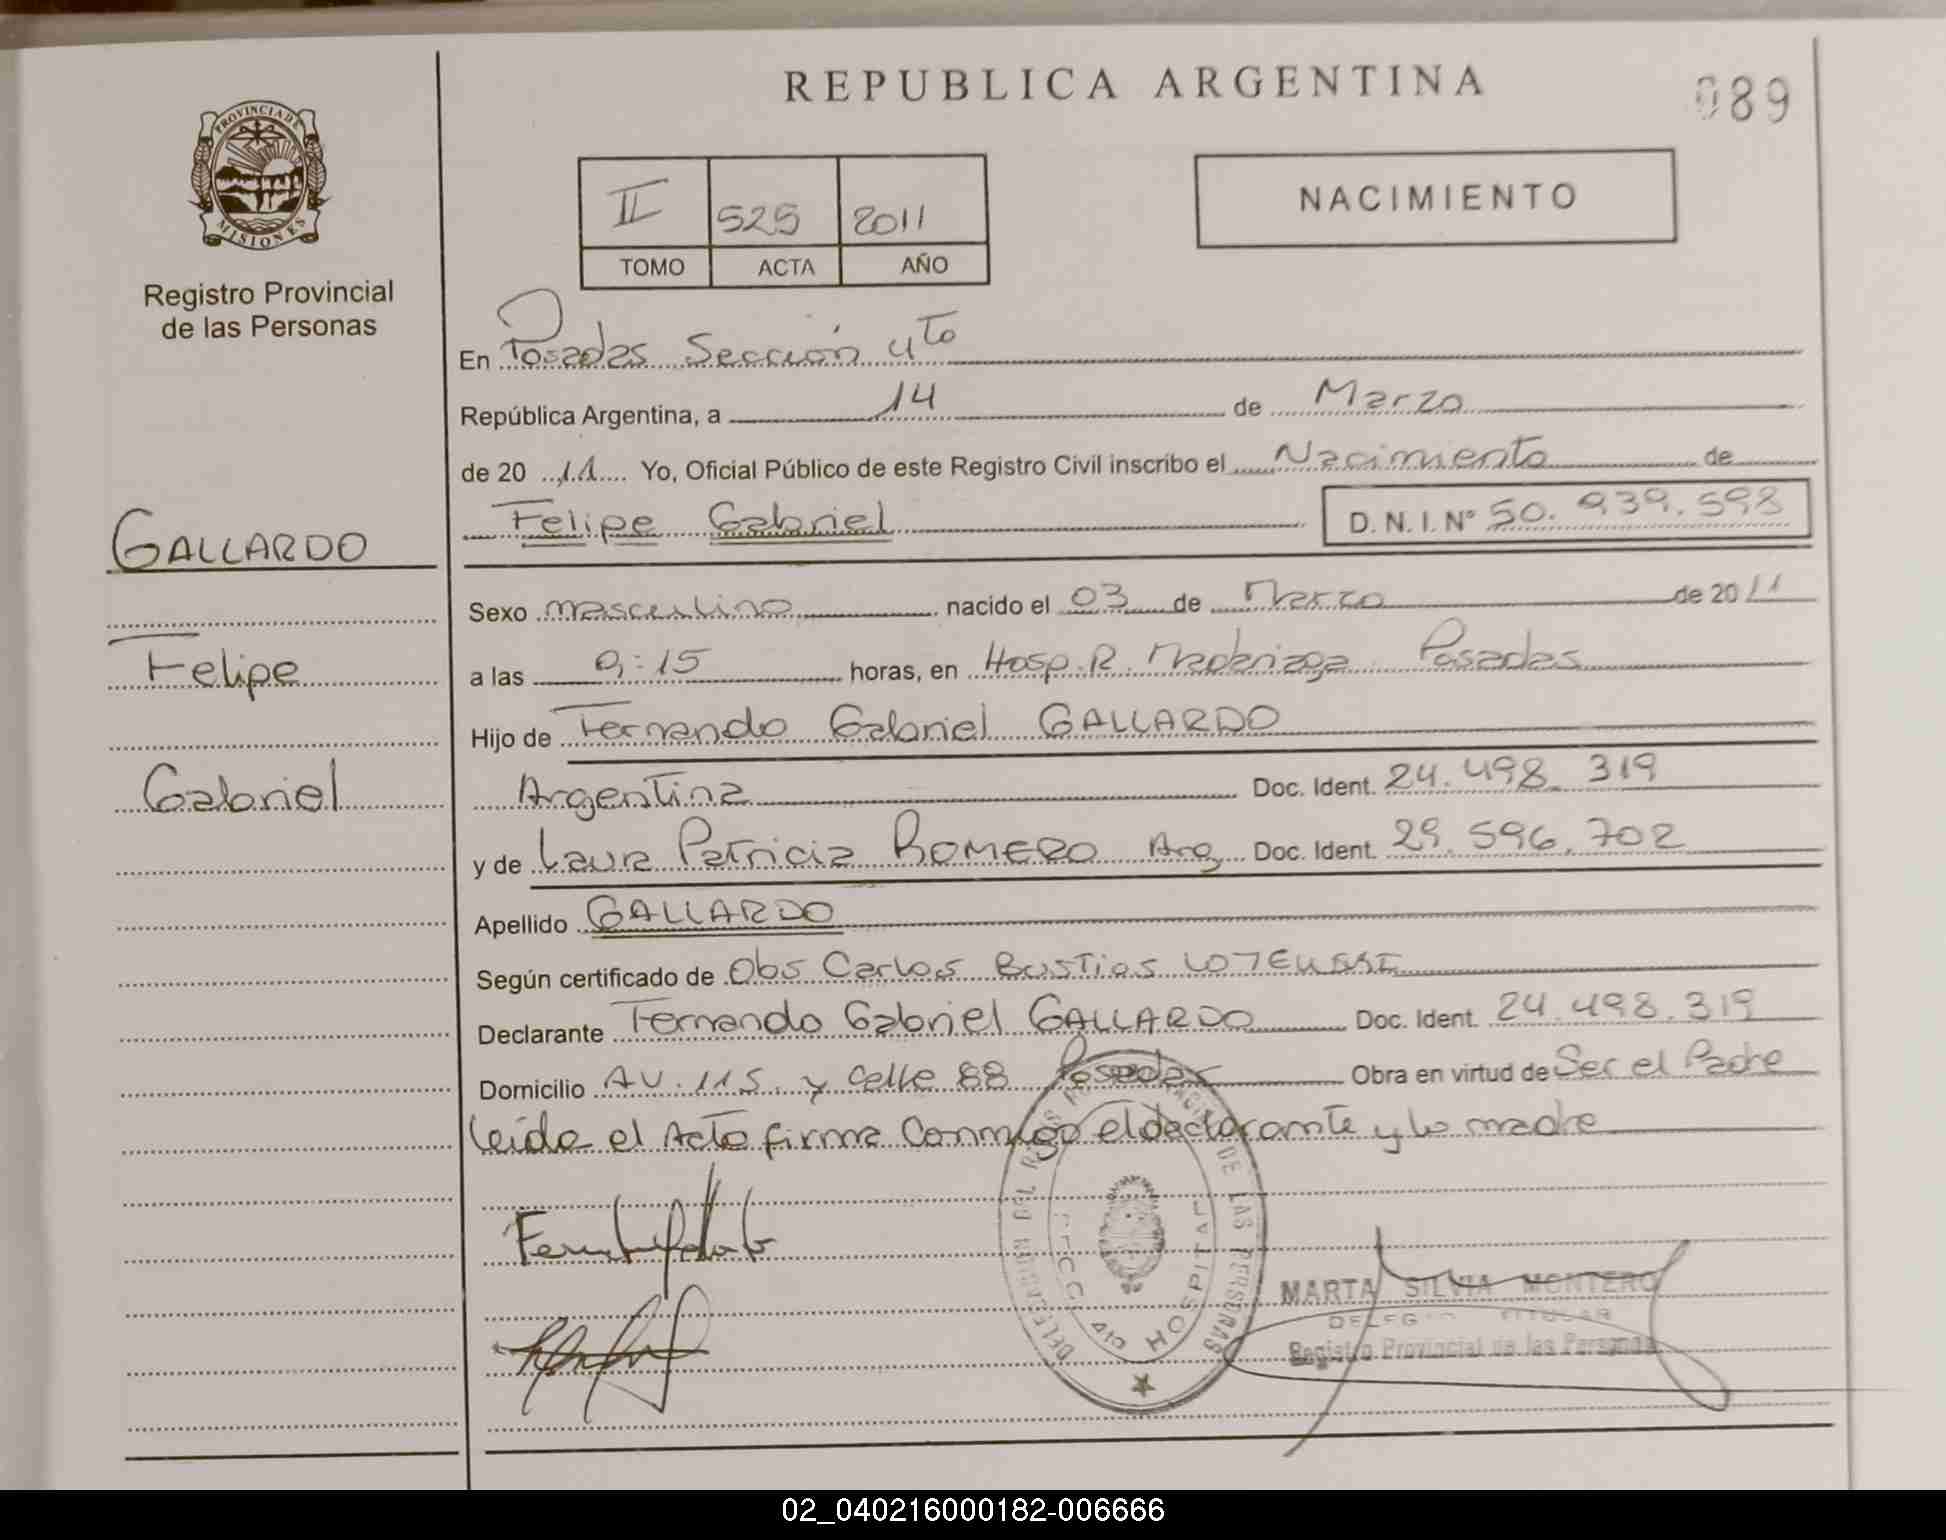 REPUBLICA ARGENTINA
089
PROVINCIA DE
MISIONES
Registro Provincial
de las Personas
II 525 2011
TOMO ACTA AÑO
NACIMIENTO
En Posadas Sección 4to
República Argentina, a 14 de Marzo
de 20 11 Yo, Oficial Público de este Registro Civil inscribo el Nacimiento de
Felipe Gabriel D. N. I. Nº 50.939.598
GALLARDO
Felipe
Gabriel
Sexo masculino nacido el 03 de Marzo de 2011
a las 0:15 horas, en Hosp. R. Madariaga Posadas
Hijo de Fernando Gabriel GALLARDO
Argentina Doc. Ident. 24.498.319
y de Laura Patricia ROMERO Arg Doc. Ident. 29.596.702
Apellido GALLARDO
Según certificado de Obs Carlos Bustios
Declarante Fernando Gabriel GALLARDO Doc. Ident. 24.498.319
Domicilio AV. 115 y Calle 88 Posadas Obra en virtud de Ser el Padre
leida el Acta firma Conmigo el declarante y la madre
DE LAS PERSONAS
HOSPITAL
MARTA SILVIA MONTERO
TITULAR
Registro Provincial de las Personas
02_040216000182-006666